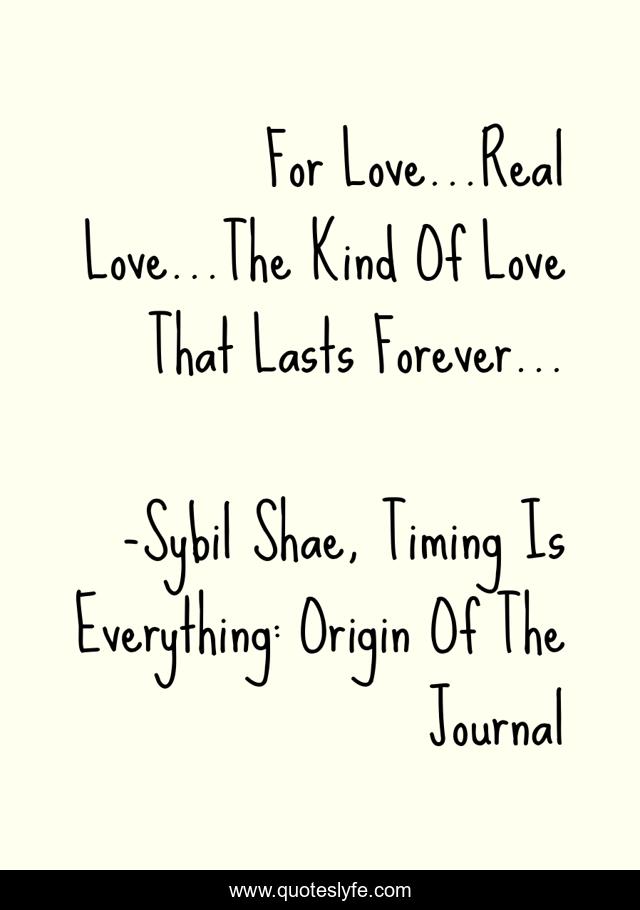 For Love...Real
Love...The Kind Of Love
That Lasts Forever...
-Sybil Shae, Timing Is
Everything: Origin Of The
Journal
www.quoteslyfe.com